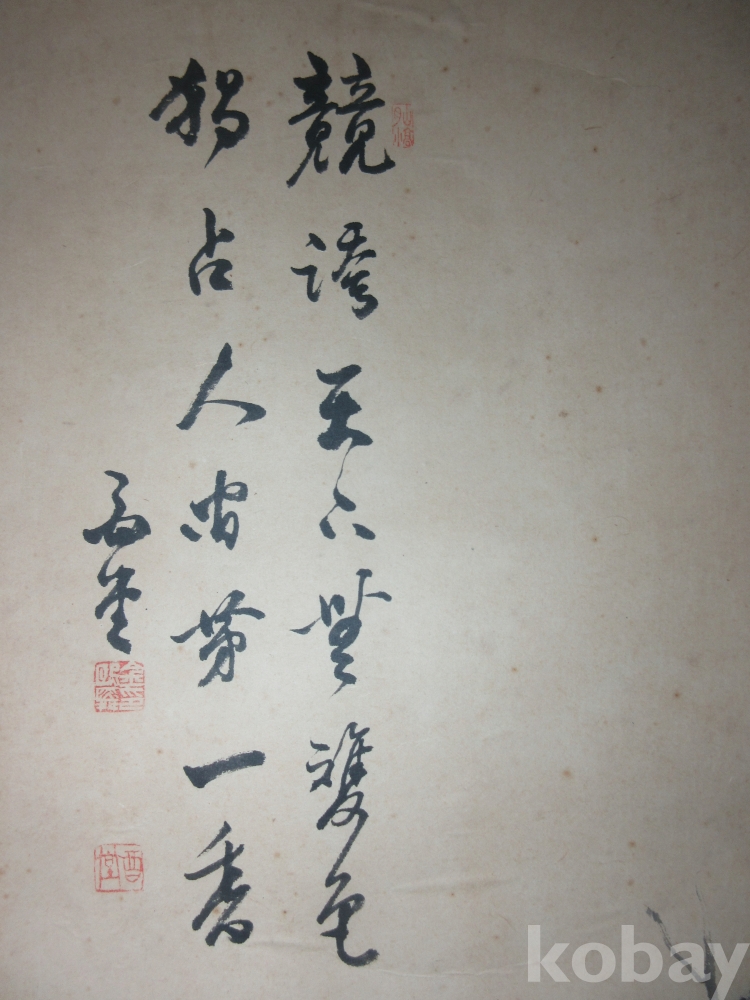 競誇天下無雙色
獨占人間第一香
kobay